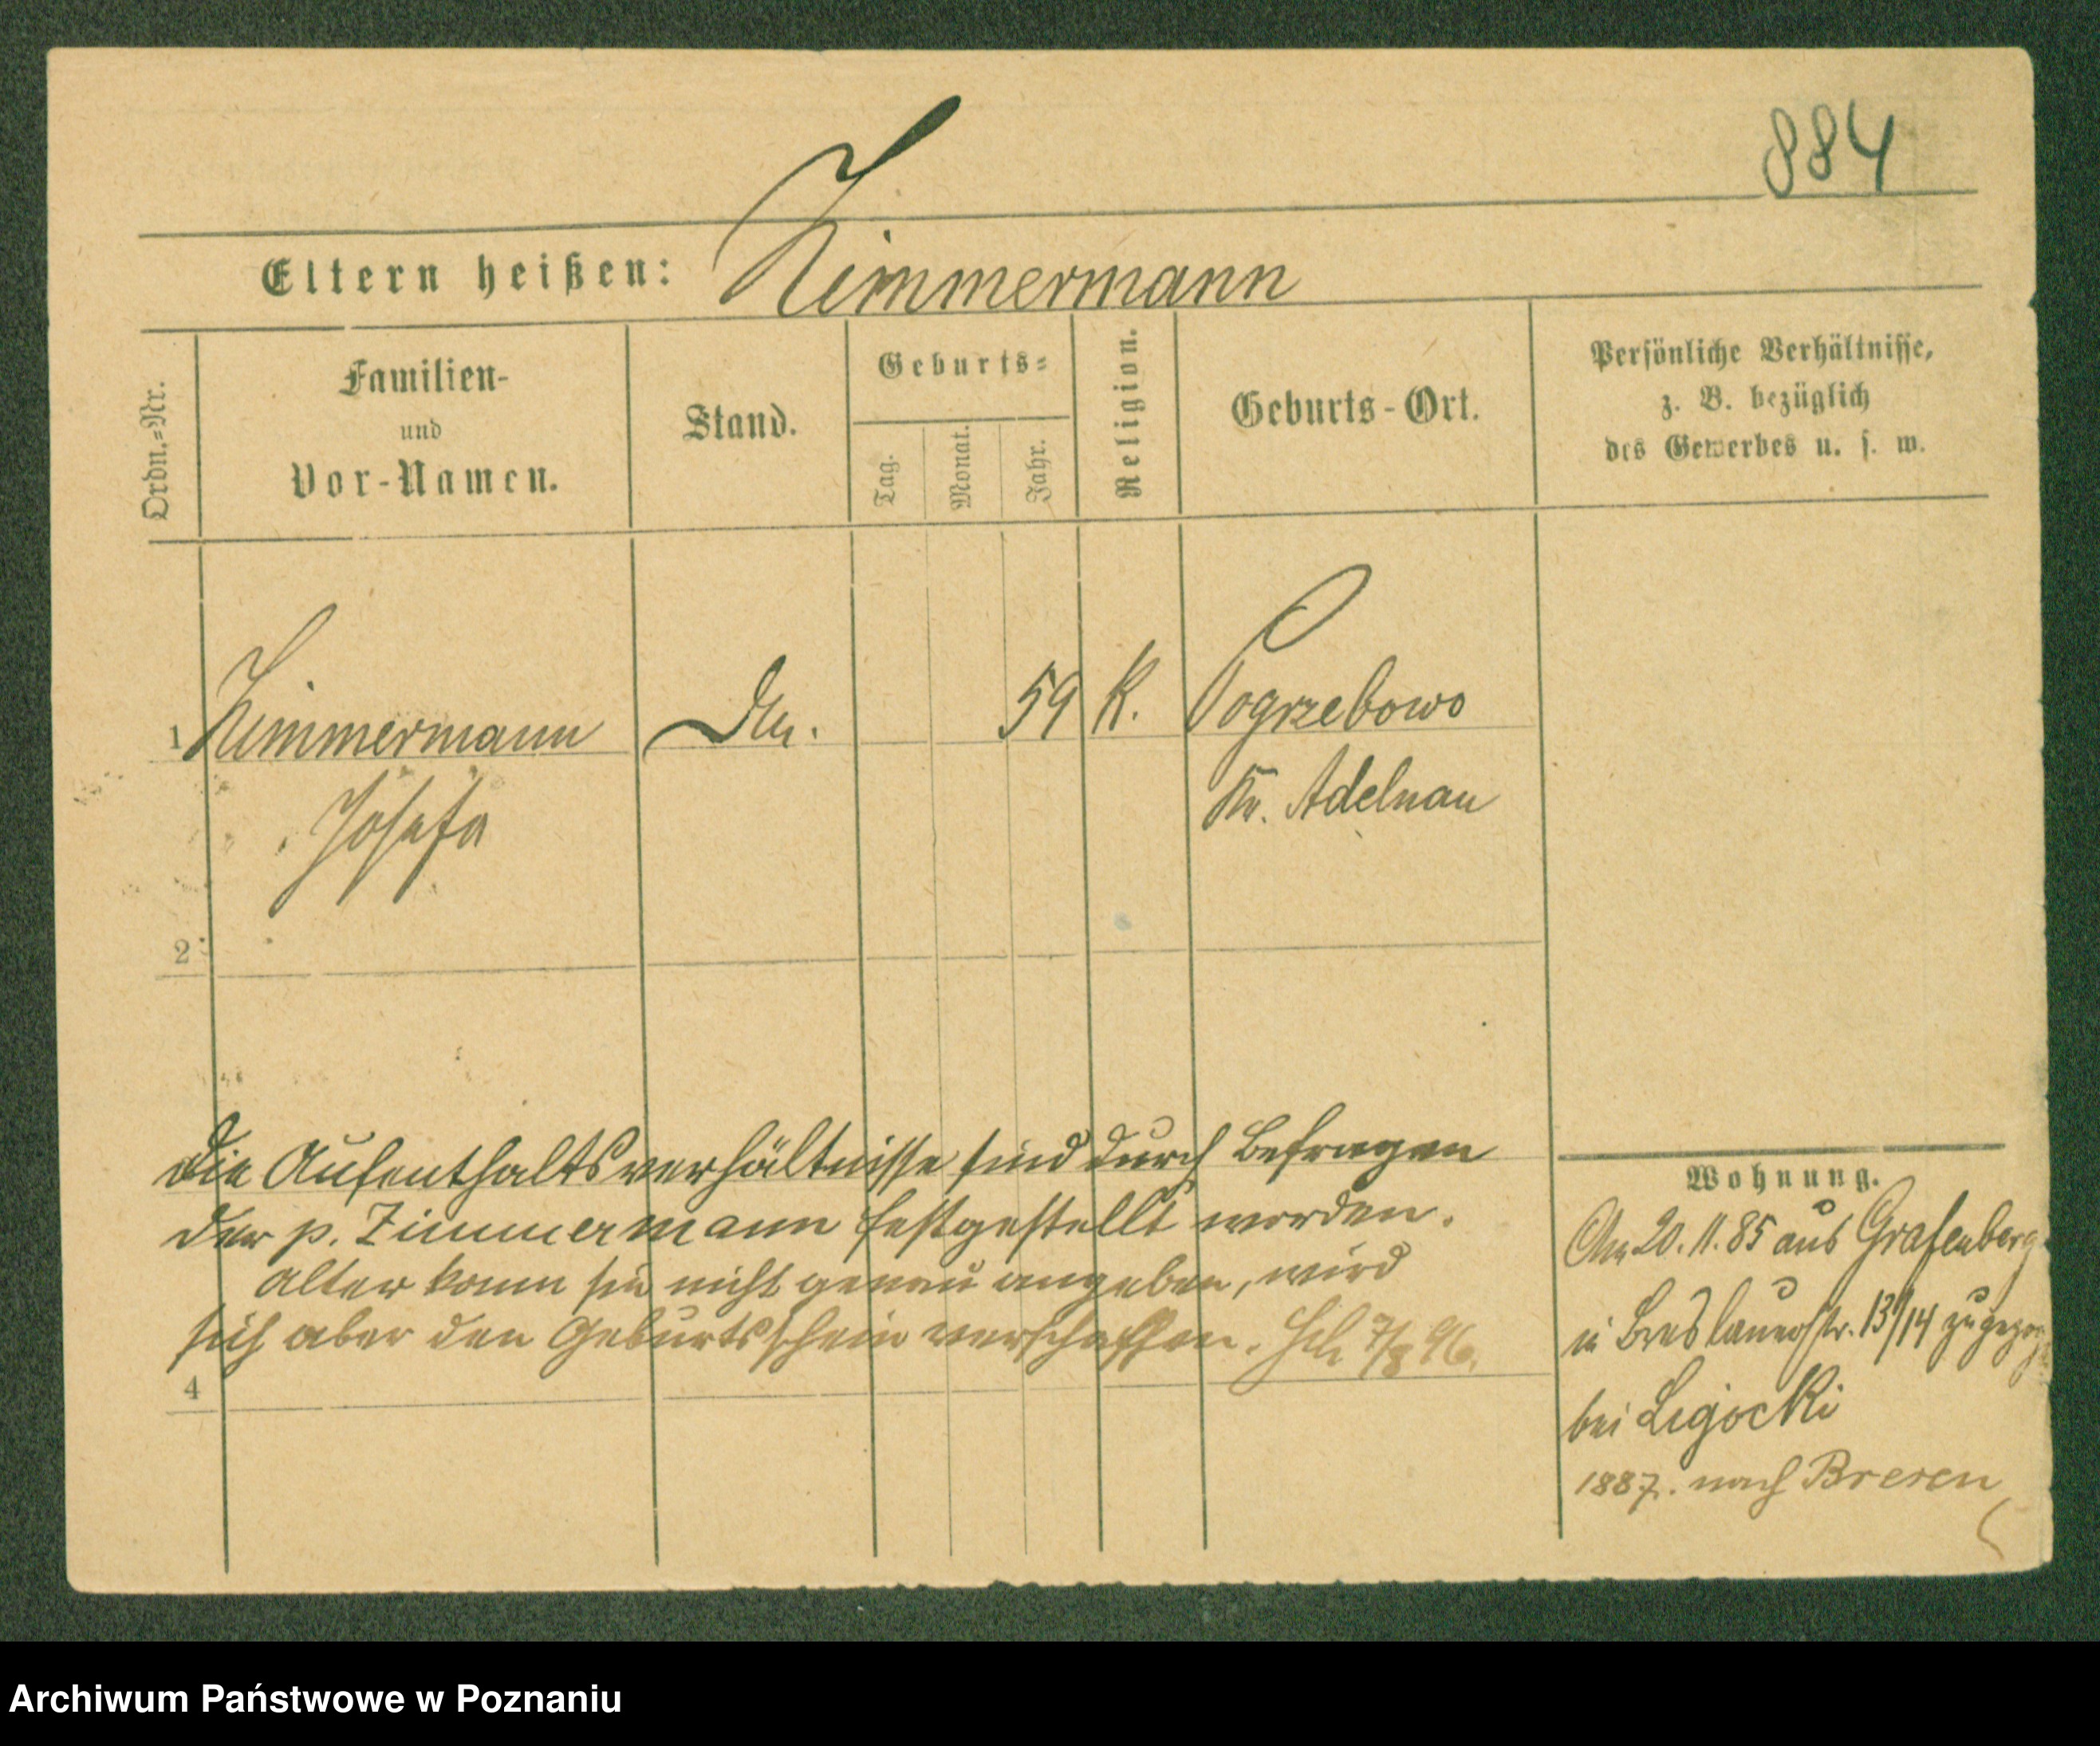 884
Eltern heißen: Zimmermann
Ordn.-Nr.
Familien-
und
Vor-Namen.
Stand.
Geburts-
Tag.
Monat.
Jahr.
Religion.
Geburts-Ort.
Persönliche Verhältnisse,
z. B. bezüglich
des Gewerbes u. s. w.
1 Zimmermann 59 K. Pogrzebowo
Josefa Kr. Adelnau
2
Die Aufenthaltsverhältnisse sind durch Befragen
der p. Zimmermann festgestellt worden.
Alter kann sie nicht genau angeben, wird
sich aber den Geburtsschein verschaffen. 7/8 96.
4
Wohnung.
Am 20. 11. 85 aus Grafenberg
in Breslauerstr. 13/14 zugezog
bei Ligocki
1887. nach Bresen
Archiwum Państwowe w Poznaniu